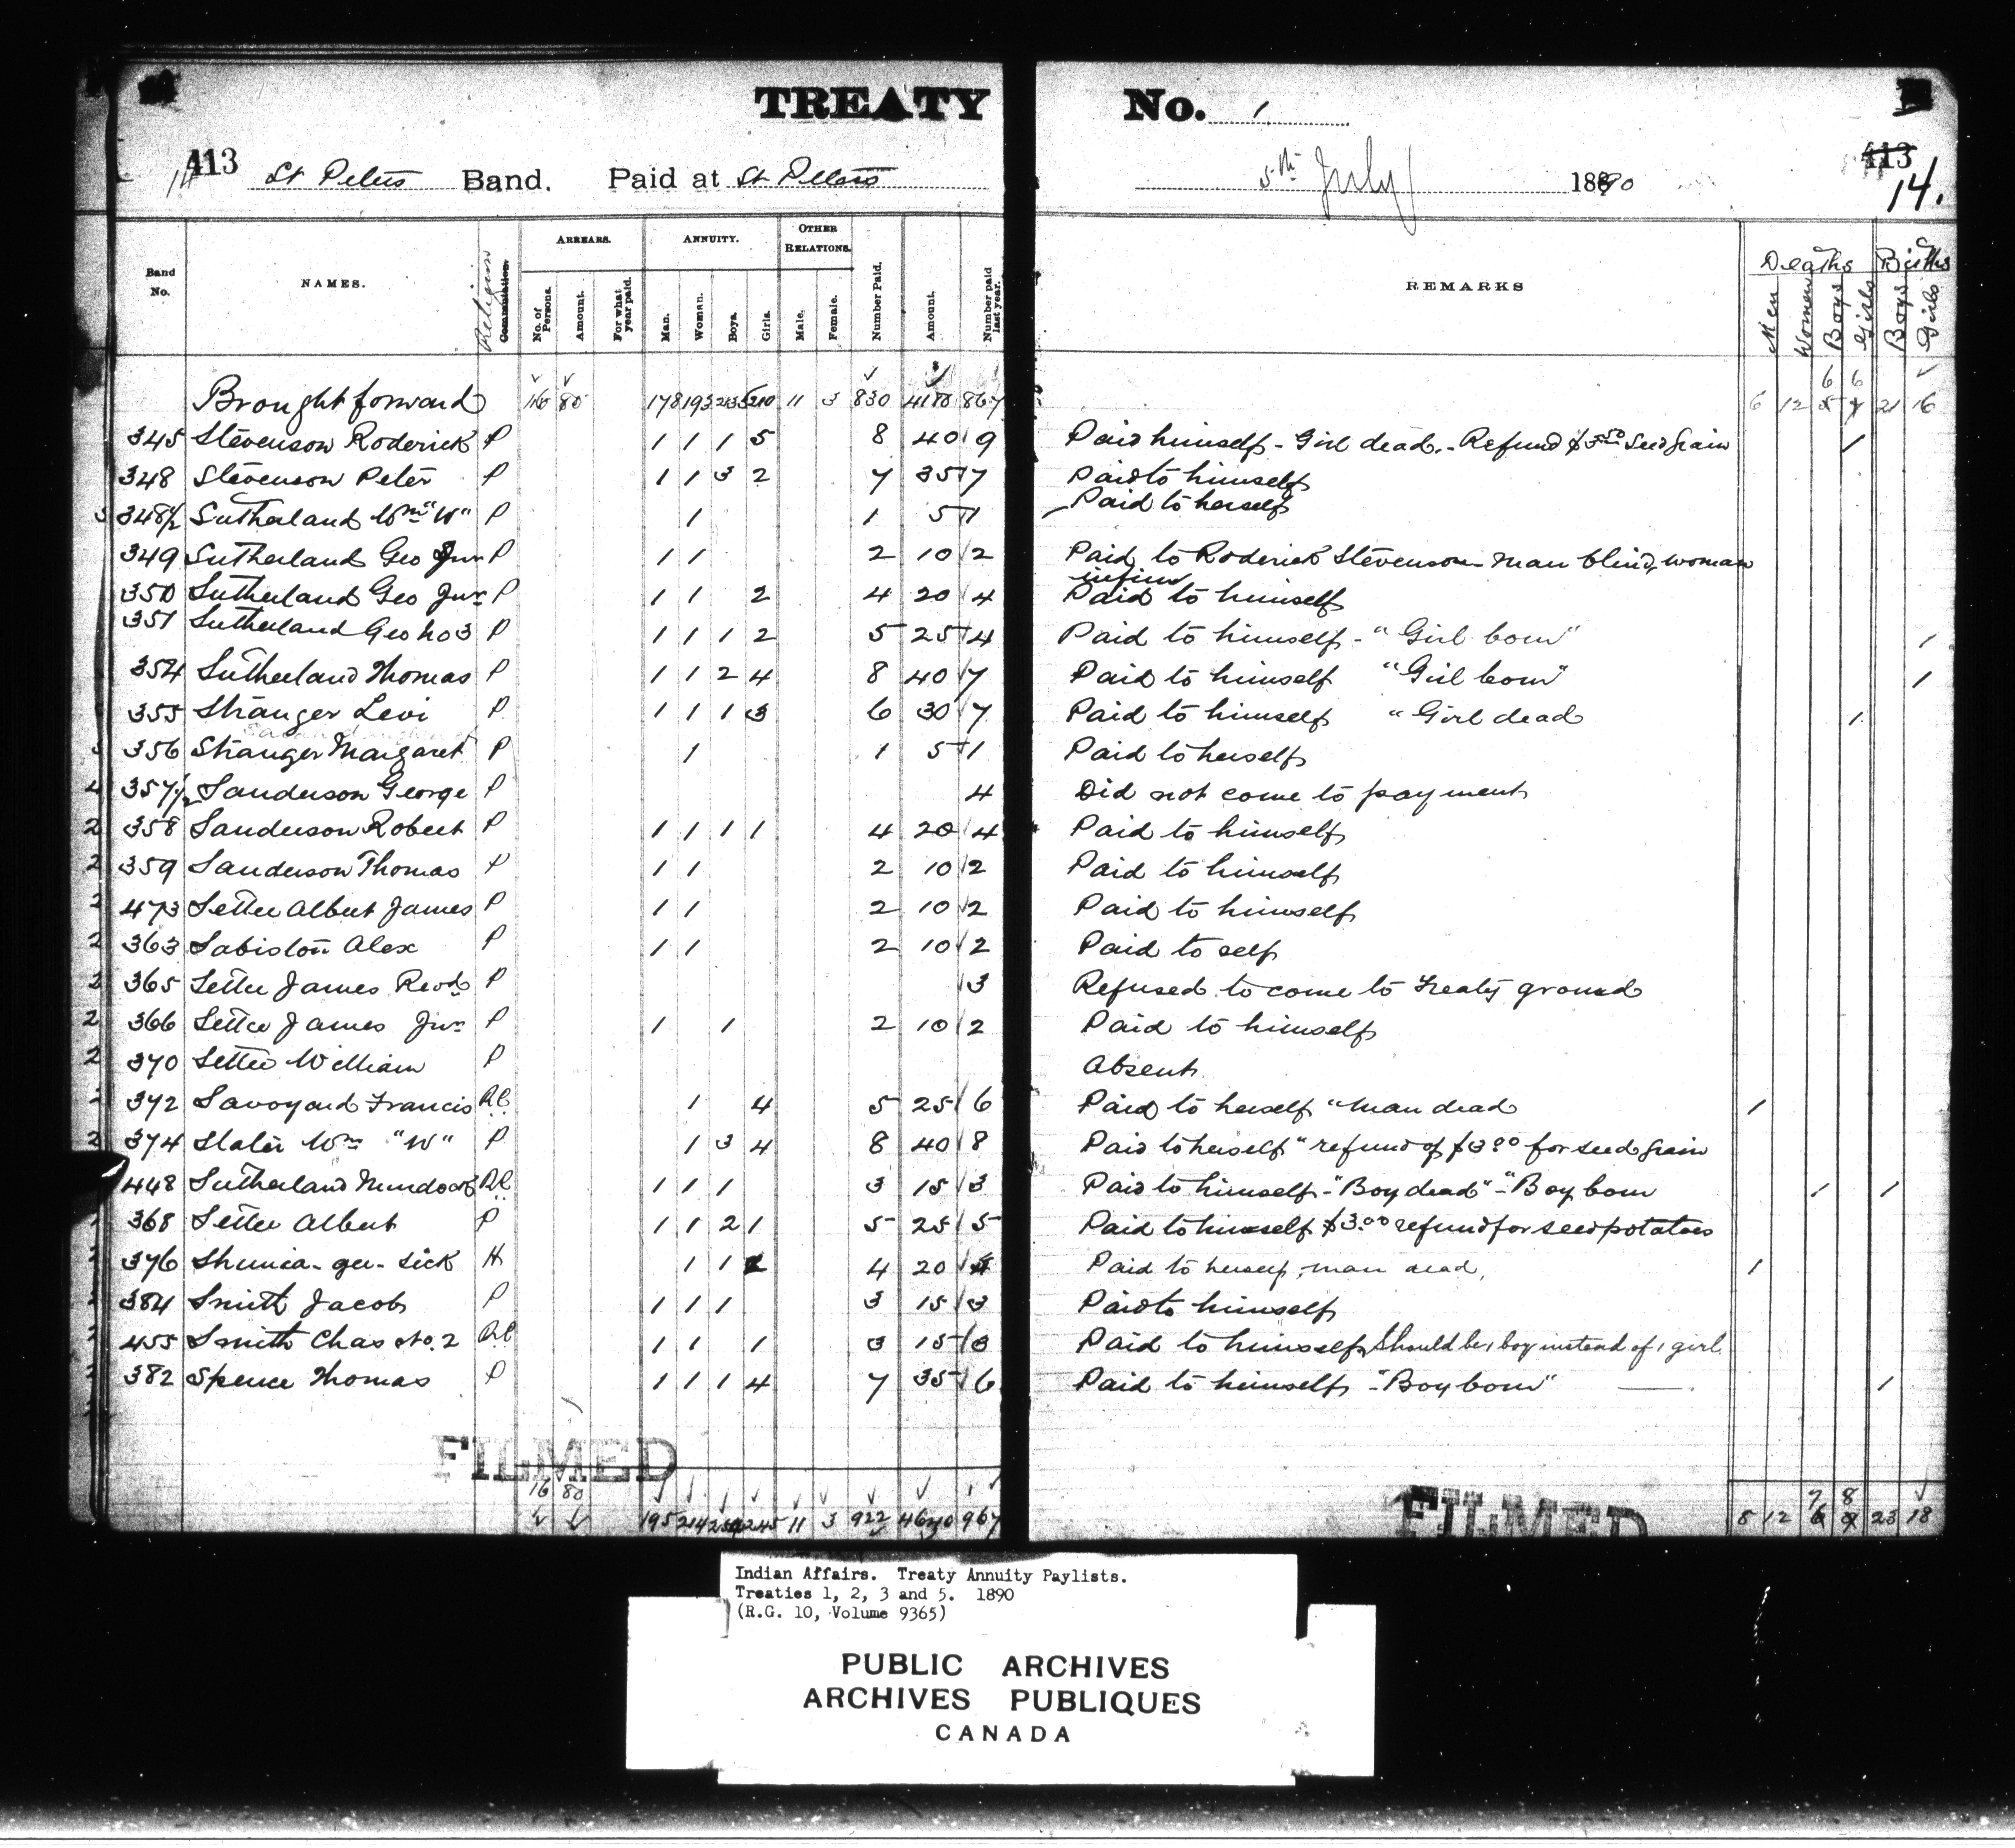 TREATY No. 1
413 St Peters Band. Paid at St Peters 5th July 1890 413 14.
Band No. NAMES. Religion Commutation. ARREARS. No. of Persons. Amount. For what year paid. ANNUITY. Man. Woman. Boys. Girls. OTHER RELATIONS. Male. Female. Number Paid. Amount. Number paid last year. REMARKS Deaths Men Women Boys Girls Births Boys Girls
6 6
Brought forward 16 80 178 193 235 210 11 3 830 4180 867 6 12 21 16
345 Stevenson Roderick P 1 1 1 5 8 40 9 Paid himself - Girl dead. - Refund Seed Grain 1
348 Stevenson Peter P 1 1 3 2 7 35 7 Paid to himself
348½ Sutherland Wm "W" P 1 1 5 1 Paid to herself
349 Sutherland Geo P 1 1 2 10 2 Paid to Roderick Stevenson man blind, woman
infirm
350 Sutherland Geo Junr P 1 1 2 4 20 4 Paid to himself
351 Sutherland Geo No 3 P 1 1 1 2 5 25 4 Paid to himself - "Girl born" 1
354 Sutherland Thomas P 1 1 2 4 8 40 7 Paid to himself "Girl born" 1
355 Stranger Levi P 1 1 1 3 6 30 7 Paid to himself "Girl dead 1
356 Stranger Margaret P 1 1 5 1 Paid to herself
357½ Sanderson George P 4 Did not come to payment
358 Sanderson Robert P 1 1 1 1 4 20 4 Paid to himself
359 Sanderson Thomas P 1 1 2 10 2 Paid to himself
473 Settee Albert James P 1 1 2 10 2 Paid to himself
363 Sabiston Alex P 1 1 2 10 2 Paid to self
365 Settee James Revd P 3 Refused to come to Treaty ground
366 Settee James Junr P 1 1 2 10 2 Paid to himself
370 Settee William P Absent
372 Savoyard Francis RC 1 4 5 25 6 Paid to herself "man dead 1
374 Slater Wm "W" P 1 3 4 8 40 8 Paid to herself "refund of $3.00 for seed grain
448 Sutherland Murdock RC 1 1 1 3 15 3 Paid to himself - "Boy dead" - "Boy born 1 1
368 Settee Albert P 1 1 2 1 5 25 5 Paid to himself $3.00 refund for seed potatoes
376 H 1 1 2 4 20 Paid to herself, man dead, 1
384 Smith Jacob P 1 1 1 3 15 3 Paid to himself
455 Smith Chas No. 2 RC 1 1 1 3 15 3 Paid to himself Should be 1 boy instead of 1 girl
382 Spence Thomas P 1 1 1 4 7 35 6 Paid to himself - "Boy born" 1
FILMED FILMED
16 80 7 8
195 214 245 11 3 922 967 8 12 23 18
Indian Affairs. Treaty Annuity Paylists.
Treaties 1, 2, 3 and 5. 1890
(R.G. 10, Volume 9365)
PUBLIC ARCHIVES
ARCHIVES PUBLIQUES
CANADA